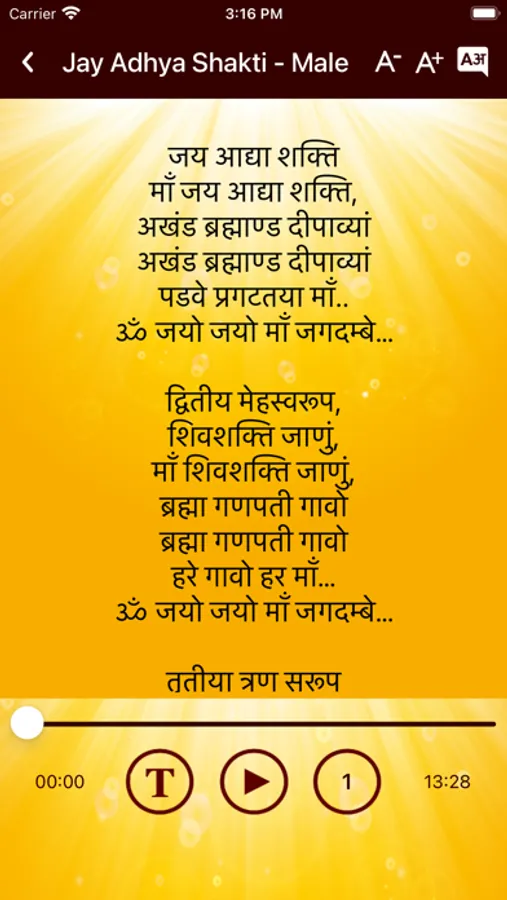 Carrier 3:16 PM
Jay Adhya Shakti - Male A- A+ Aअ
जय आद्या शक्ति
माँ जय आद्या शक्ति,
अखंड ब्रह्माण्ड दीपाव्यां
अखंड ब्रह्माण्ड दीपाव्यां
पडवे प्रगटतया माँ..
ॐ जयो जयो माँ जगदम्बे...
द्वितीय मेहस्वरूप,
शिवशक्ति जाणुं,
माँ शिवशक्ति जाणुं,
ब्रह्मा गणपती गावो
ब्रह्मा गणपती गावो
हरे गावो हर माँ...
ॐ जयो जयो माँ जगदम्बे...
तृतीया त्रण सरूप
00:00 T 1 13:28